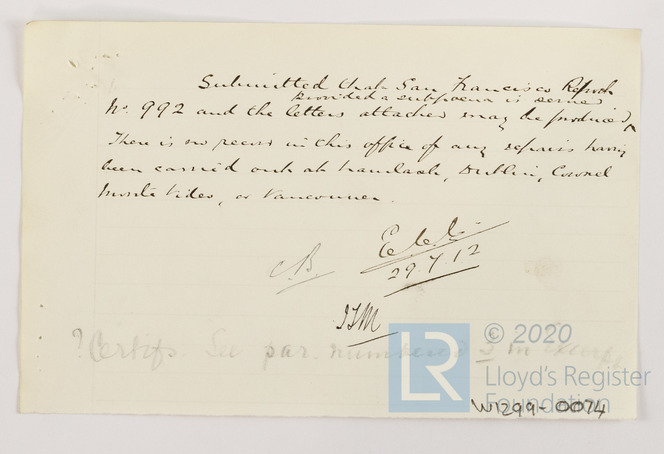 Submitted that San Francisco Report
provided a subpoena is served
No. 992 and the letters attached may be produced
There is no record in this office of any repairs having
been carried out at, Dublin, Coronel
Monte Video, or Vancouver.
C.B.
29.7.12
? Certifs. See par. numbered
LR
© 2020
Lloyd's Register
Foundation
W1299-0074